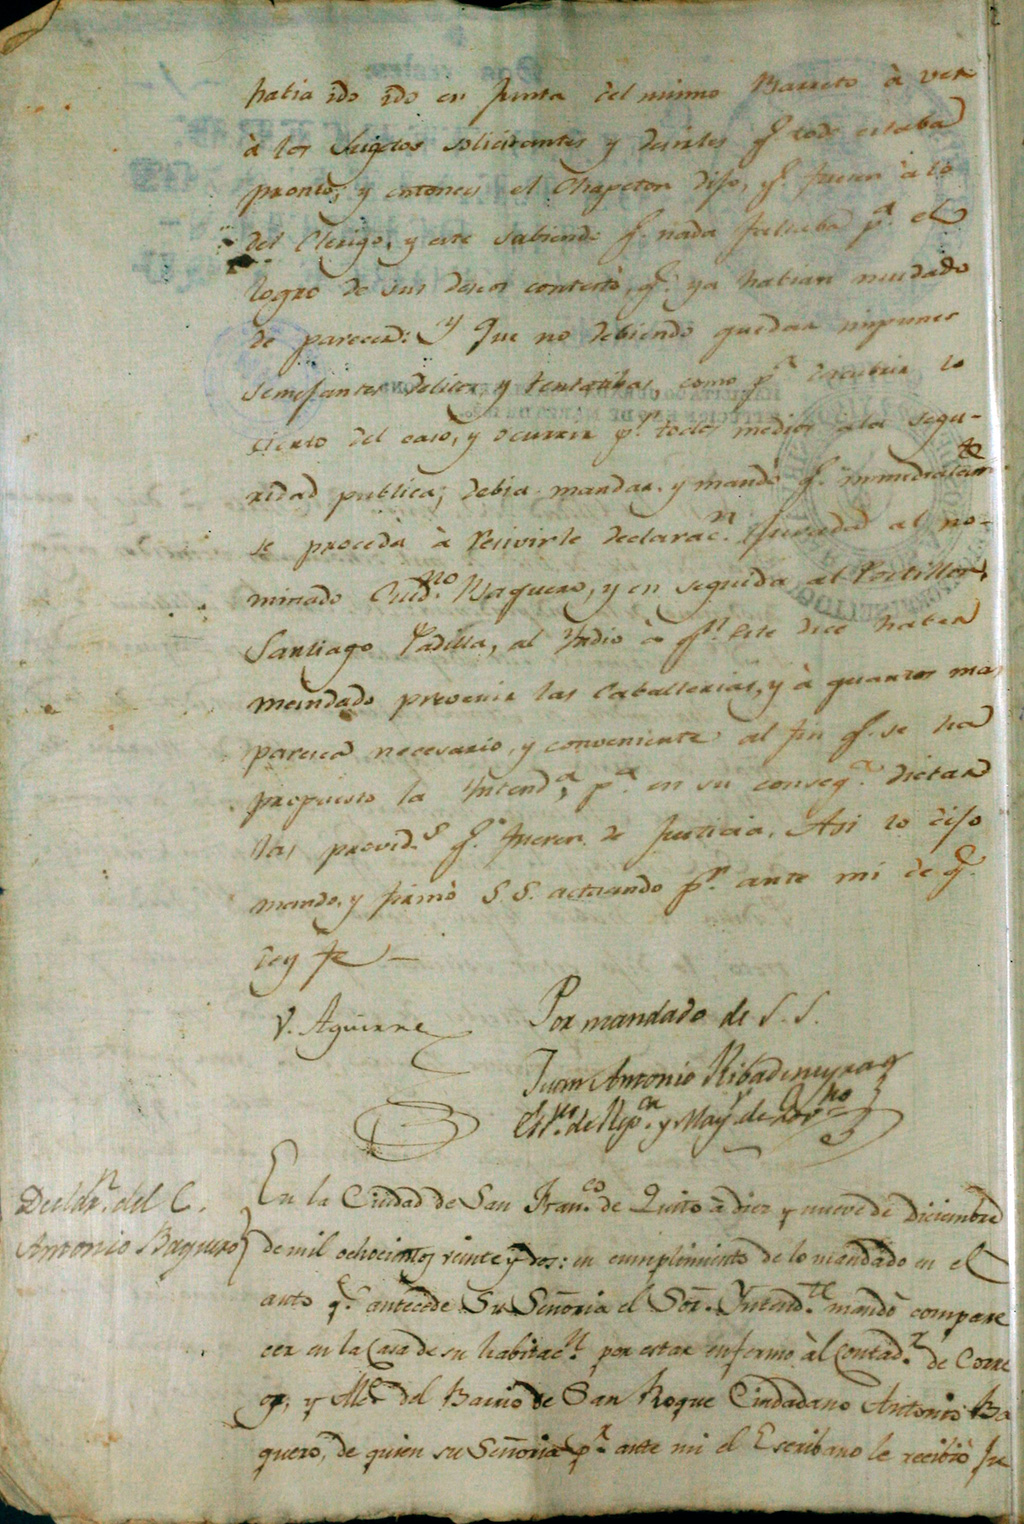 habia ido ido en Junta del mismo Barreto à ver
à los Sugetos solicitantes y decirles q.e todo estaba
pronto; y entonces el Chapeton dijo, q.e fueran à lo
del Clerigo, y este sabiendo q.e nada faltaba p.a el
logro de sus deseos contestò, q.e ya habian mudado
de parecer: Y Que no debiendo quedar impunes
semejantes delitos y tentatibas, como p.a descubrir lo
cierto del caso, y ocurrir p.r todos medios ala segu-
ridad publica; debia mandar y mandò q.e inmediatam.te
se proceda à recivirle declarac.n jurada al no-
minado Ciud.no Vaquero, y en seguida al Portillo,
Santiago Padilla, al Yndio à q.n este dice haber
mandado prevenir las Caballerias, y à quantos mas
paresca necesario, y conveniente al fin q.e se ha
propuesto la Intend.a, p.a en su conseq.a dictar
las provid.s q.e fueren de Justicia. Asi lo dijo
mando, y firmò S.S. actuando p.r ante mi de q.e
doy fe —
V. Aguirre
Por mandado de S. S.
Juan Antonio Ribadeneyra
Ess.no de Rep.ca y May.r de Gov.no
Declar.n del C.
Antonio Baquero
En la Ciudad de San Fran.co de Quito à diez y nueve de Diciembre
de mil ochocientos veinte y dos: en cumplimiento de lo mandado en el
auto q.e antecede Su Señoria el Sor. Yntend.te mandò compare
cer en la Casa de su habitac.n por estar enfermo àl Contad.r de Corre
os, y Alc.e del Barrio de San Roque Ciudadano Antonio Ba
quero, de quien su Señoria p.r ante mi el Escribano le recibiò Ju